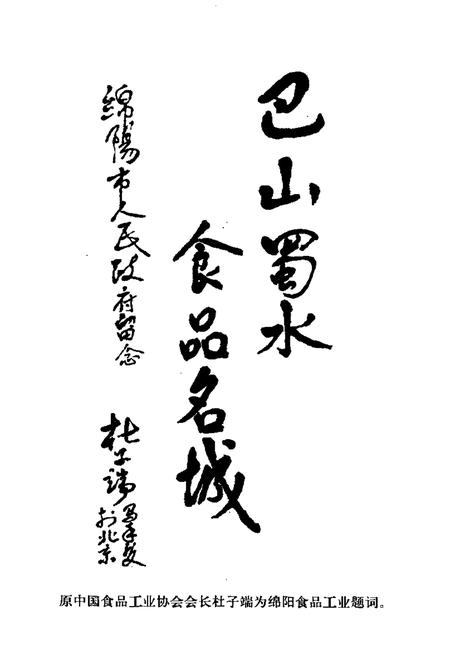 巴山蜀水
食品名城
綿陽市人民政府留念
杜子端
於北京
原中国食品工业协会会长杜子端为绵阳食品工业题词。